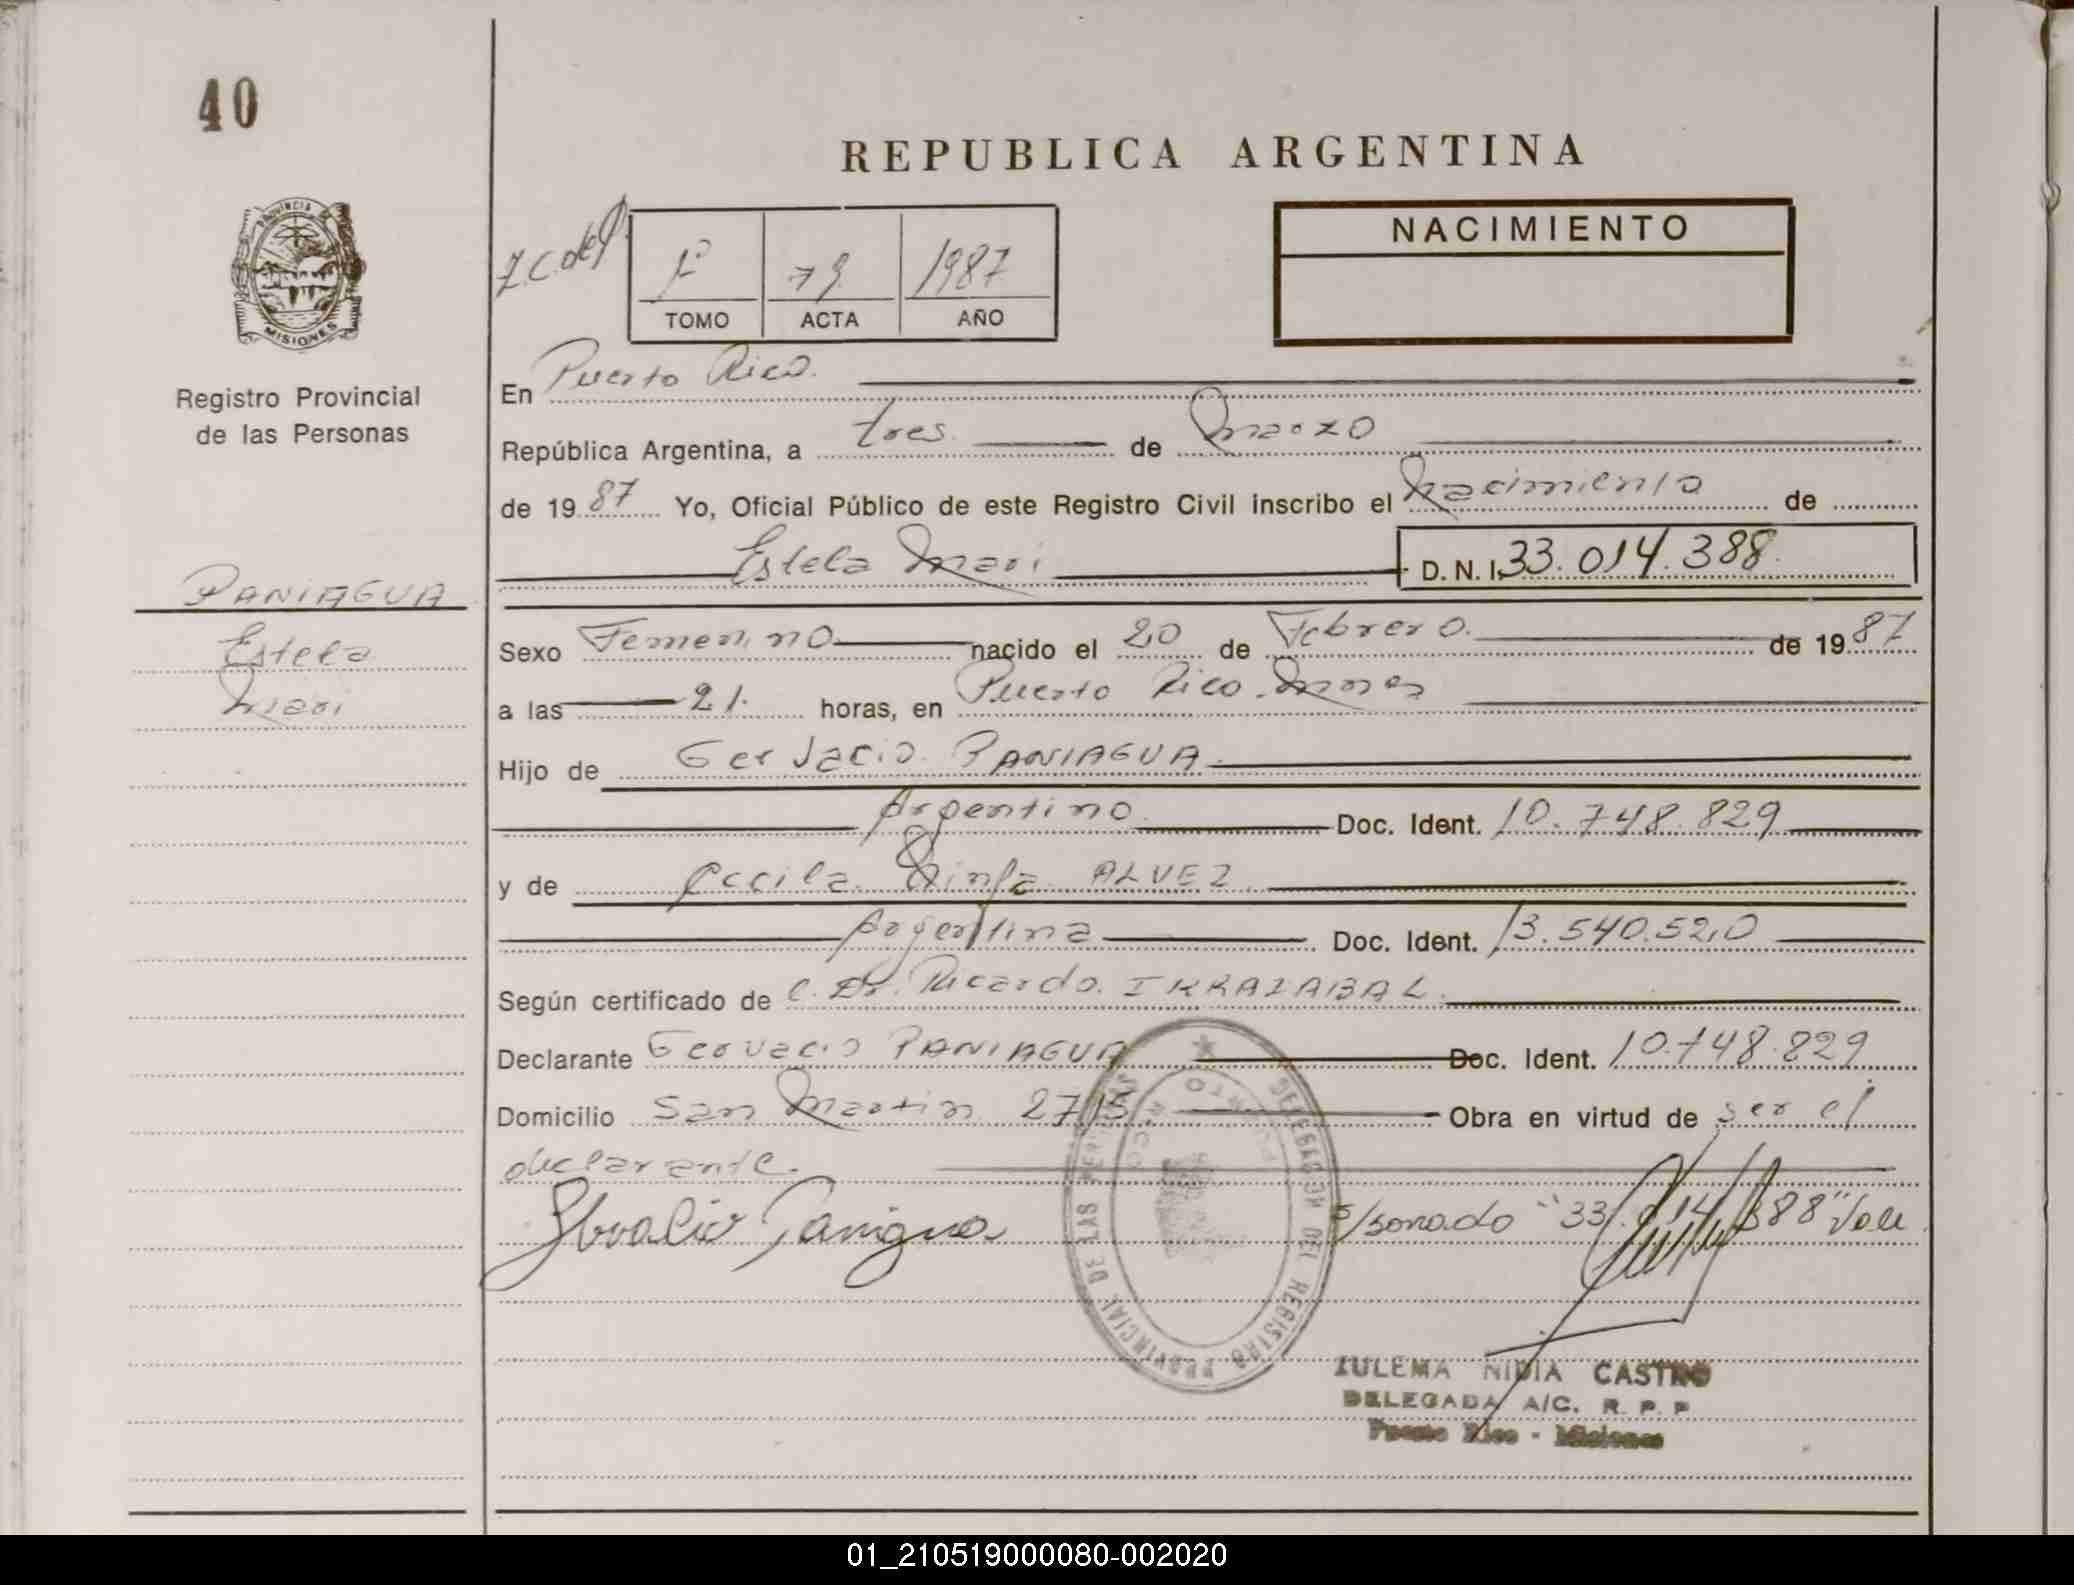 40
REPUBLICA ARGENTINA
PROVINCIA DE
MISIONES
Registro Provincial
de las Personas
1º 79 1987
TOMO ACTA AÑO
NACIMIENTO
En Puerto Rico.
República Argentina, a tres de Marzo
de 1987 Yo, Oficial Público de este Registro Civil inscribo el Nacimiento de
Estela Mari D. N. I. 33.014.388
PANIAGUA
Estela
Mari
Sexo Femenino nacido el 20 de Febrero. de 1987
a las 21. horas, en Puerto Rico. Mnes
Hijo de Gervacio PANIAGUA.
Argentino. Doc. Ident. 10.748.829
y de Cecila Ninfa ALVEZ
Argentina Doc. Ident. 13.540.520
Según certificado de Dr. Ricardo IRRAZABAL
Declarante Gervacio PANIAGUA Doc. Ident. 10.748.829
Domicilio San Martin 2715 Obra en virtud de ser el
declarante.
Paniagua
"33.014.388" Vale
DELEGACION DEL REGISTRO PROVINCIAL DE LAS PERSONAS
PUERTO RICO
ZULEMA NIDIA CASTRO
DELEGADA A/C. R. P. P.
Puerto Rico - Misiones
01_210519000080-002020